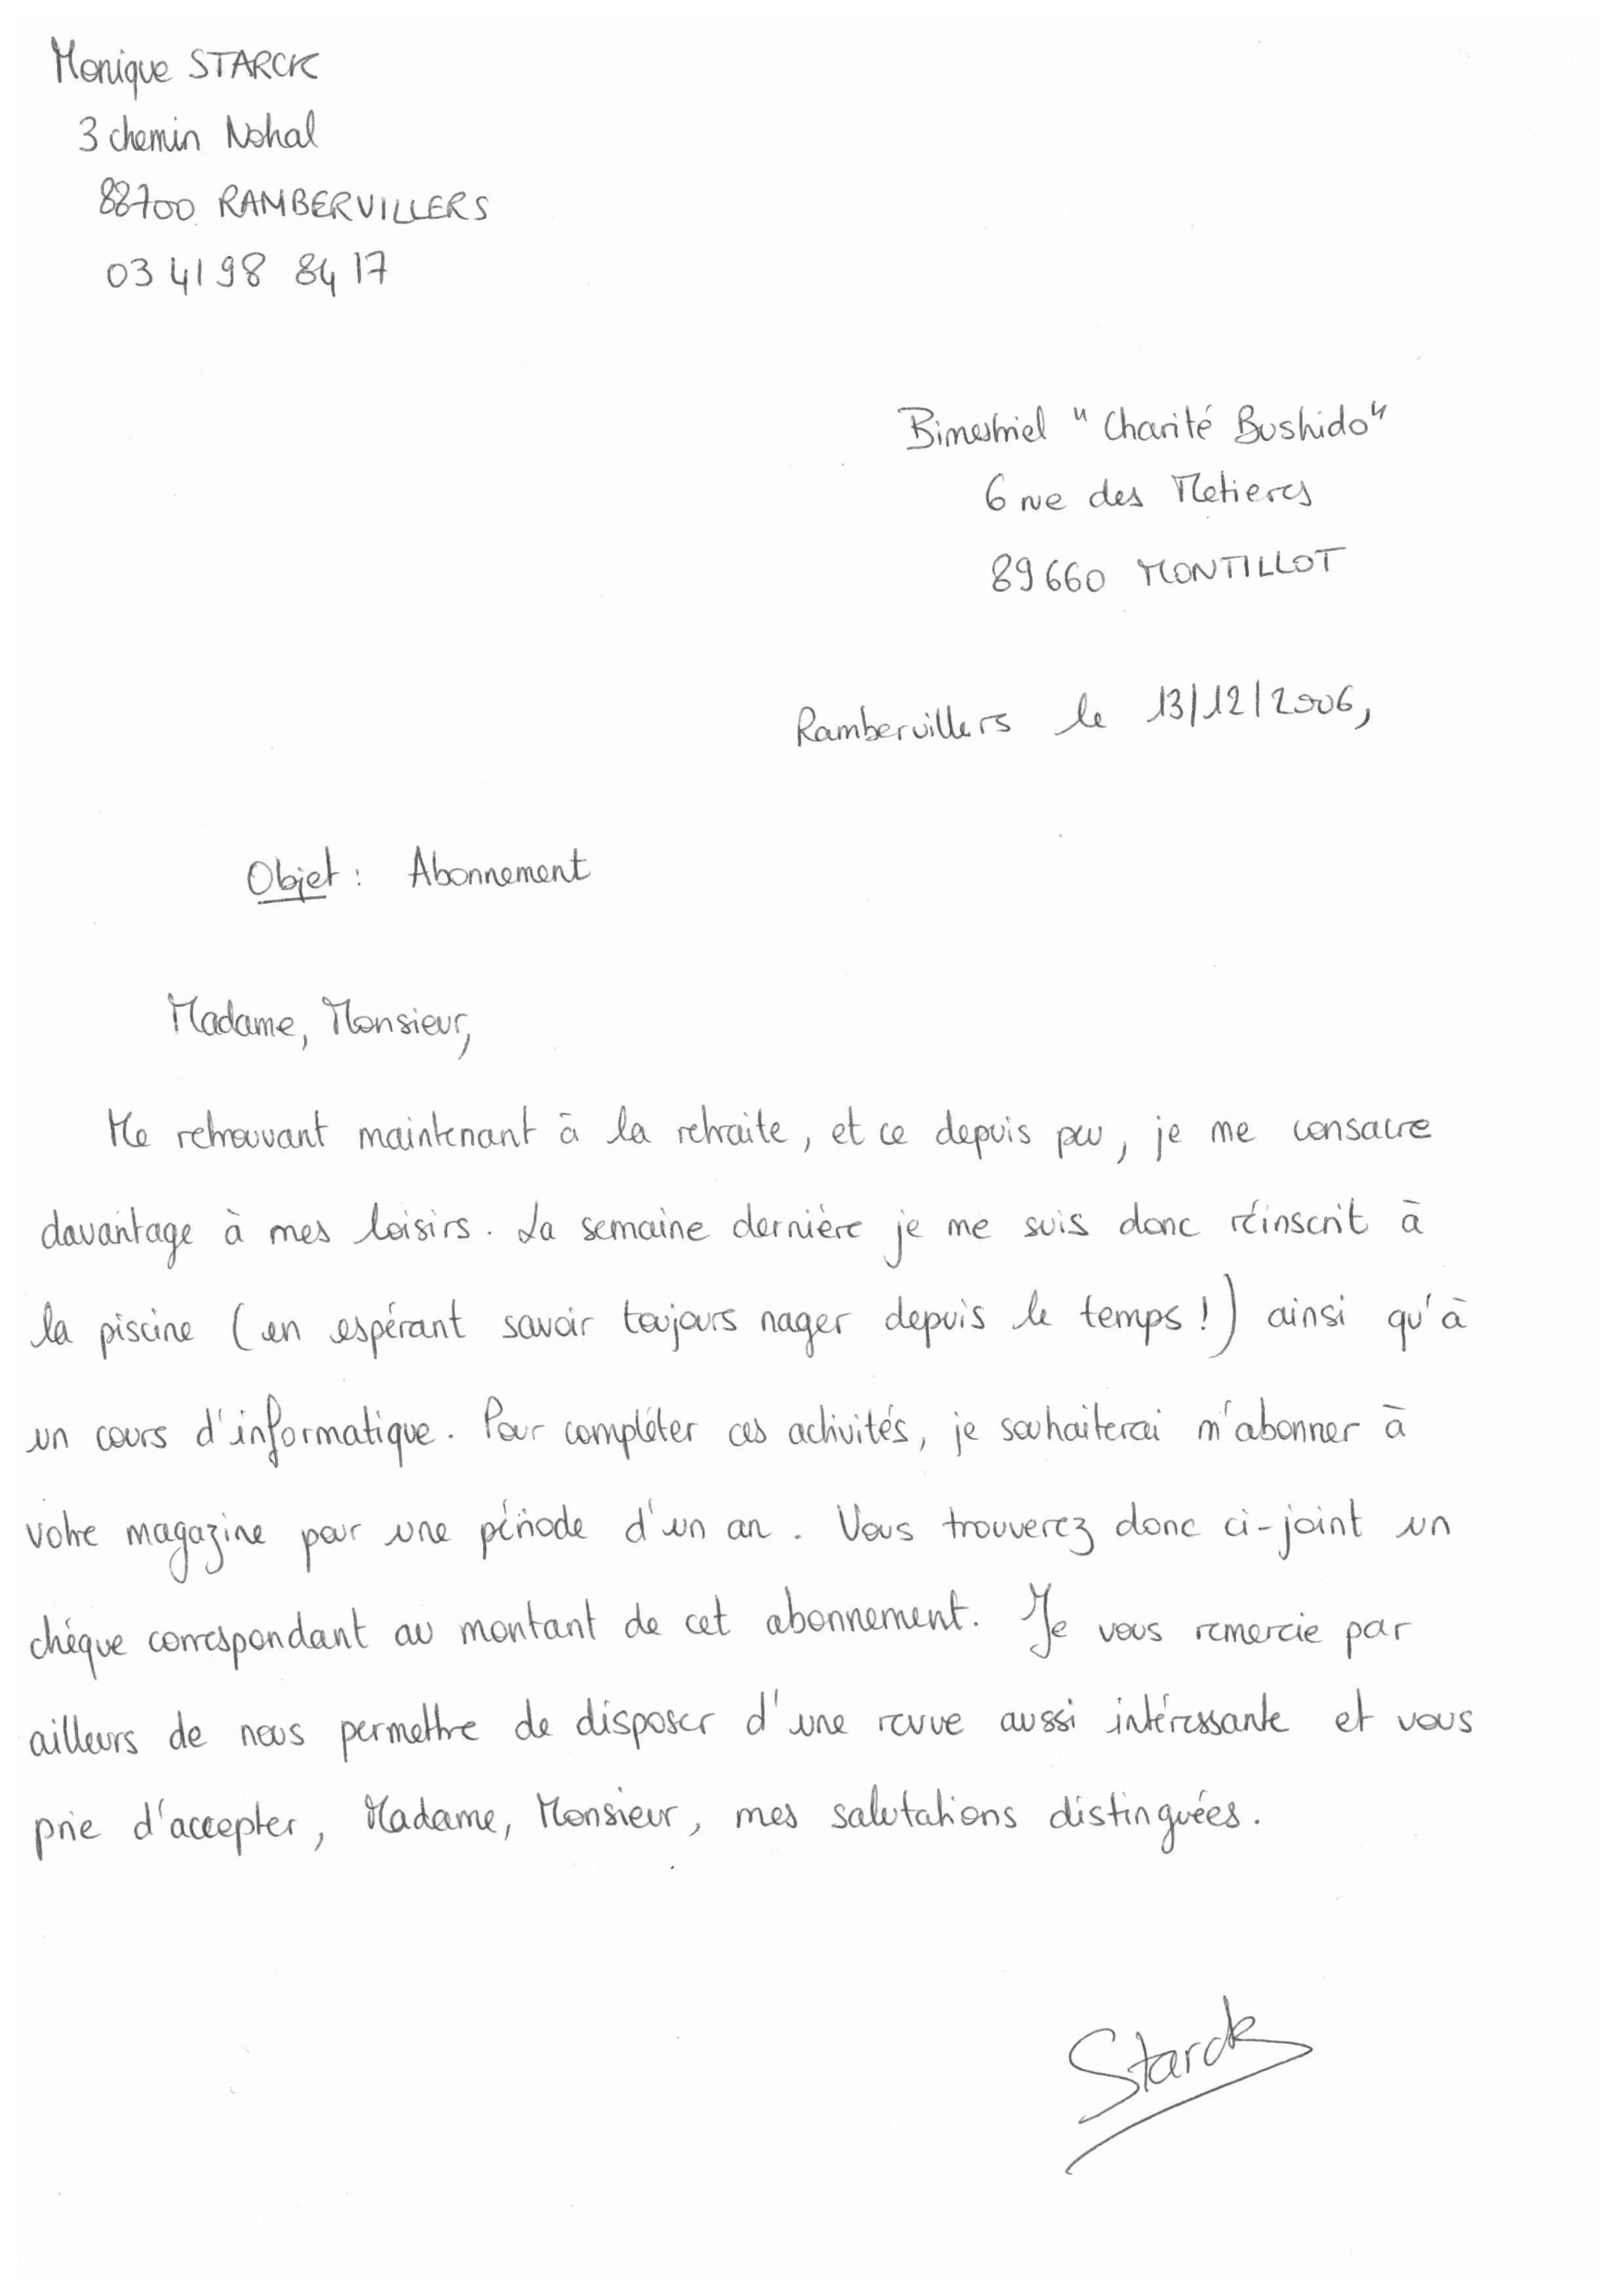 Monique STARCK
3 chemin Nohal
88700 RAMBERVILLERS
03 41 98 84 17
Bimestriel "Charité Bushido"
6 rue des Metiers
89660 MONTILLOT
Rambervillers le 13/12/2006,
Objet : Abonnement
Madame, Monsieur,
Me retrouvant maintenant à la retraite, et ce depuis peu, je me consacre
davantage à mes loisirs. La semaine dernière je me suis donc réinscrit à
la piscine (en espérant savoir toujours nager depuis le temps !) ainsi qu'à
un cours d'informatique. Pour compléter ces activités, je souhaiterai m'abonner à
votre magazine pour une période d'un an. Vous trouverez donc ci-joint un
chéque correspondant au montant de cet abonnement. Je vous remercie par
ailleurs de nous permettre de disposer d'une revue aussi intéressante et vous
prie d'accepter, Madame, Monsieur, mes salutations distinguées.
Starck